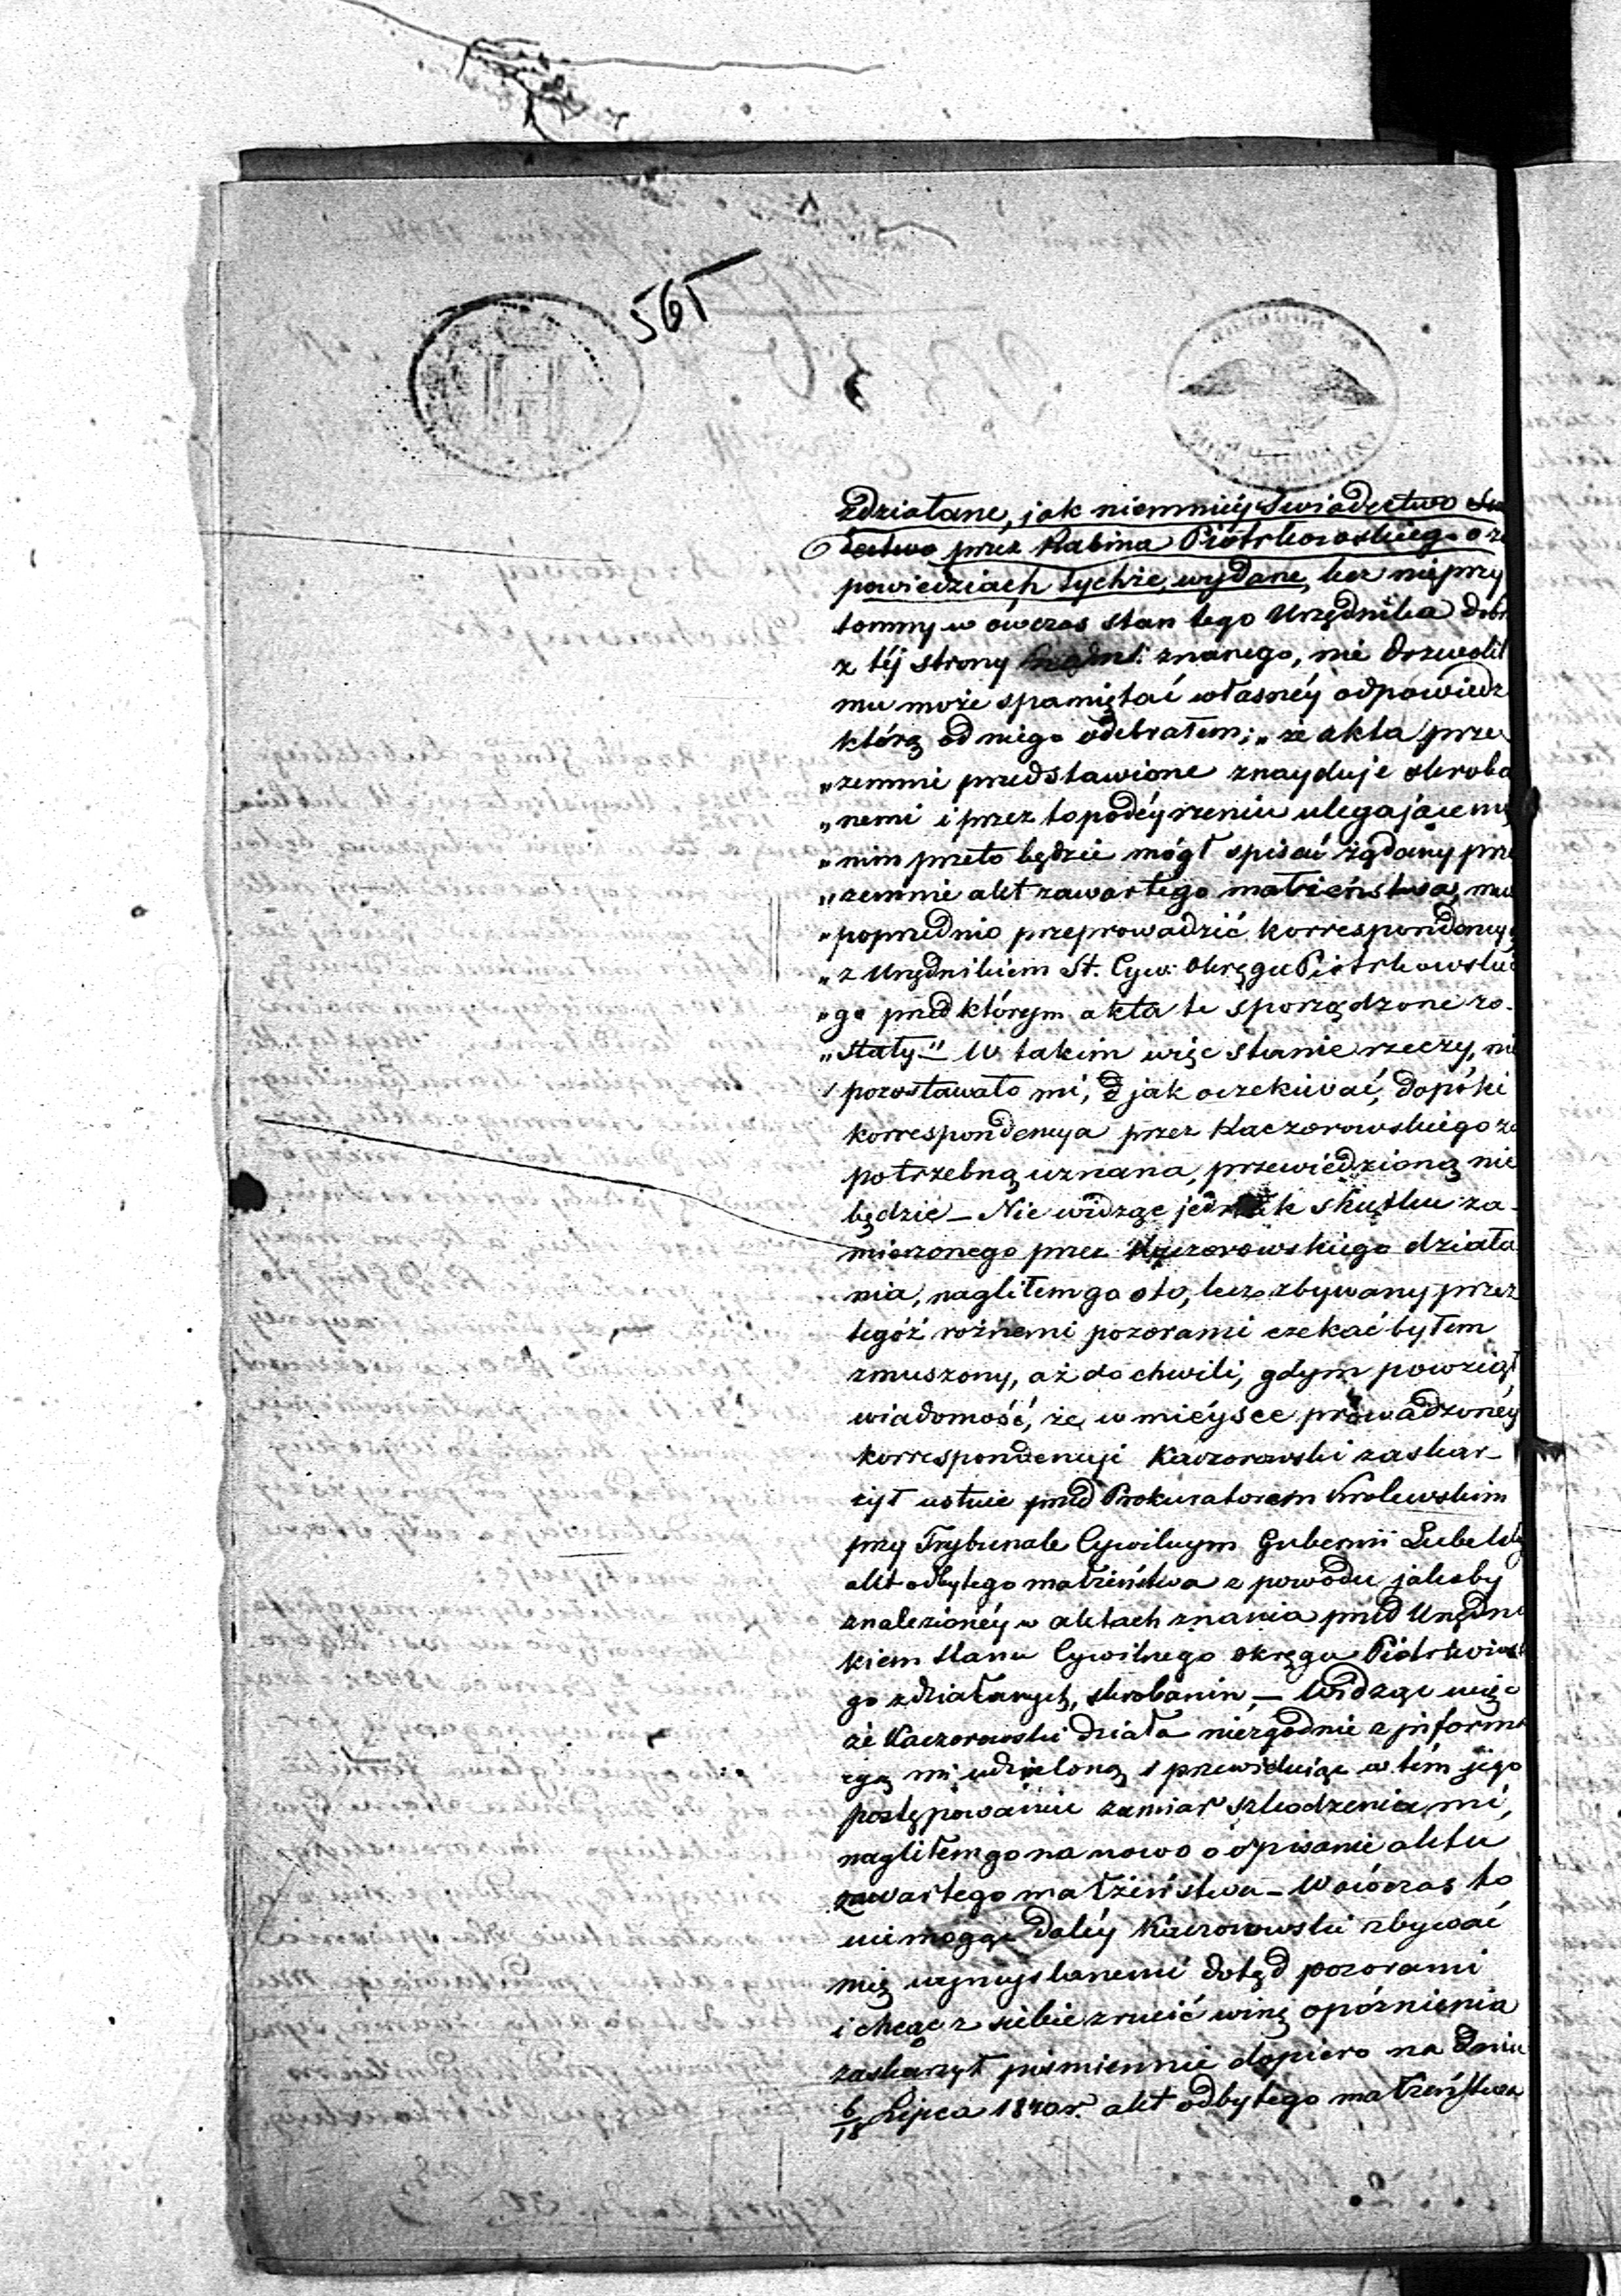 561
zdziałane, jak niemniéy Swiadectwo
przez Rabina Piotrkowskiego o za
powiedziach tychże, wydane, lecz nieprzy
tomny w ówczas stan tego Urzędnika dobr
z téj strony znanego, nie dozwolił
mu może spamiętać własnéy odpowiedz
którą od niego odebrałem; „że akta prze
„zemnie przedstawione znayduje skroba
„nemi i przez to podéyrzeniu ulegającemi
„nim przeto będzie mógł spisać żądany prze
„zemnie akt zawartego małżeństwa, mus
„poprzednio przeprowadzić korrespondencyą
„z Urzędnikiem St. Cyw: Okręgu Piotrkowskie
„go przed którym akta te sporządzone zo-
„stały." W takim więc stanie rzeczy, nie
pozostawało mi, jak oczekiwać, dopóki
korrespondencya przez Kaczorowskiego za
potrzebną uznana, przewiedzioną nie
będzie – Nie widząc jednak skutku za-
mierzonego przez Kaczorowskiego działa
nia, nagliłem go oto, lecz zbywany przez
tegóż rożnemi pozorami czekać byłem
zmuszony, aż do chwili, gdym powziął
wiadomość, że w mieysce prowadzonéy
korrespondencyi Kaczorowski zaskar-
żył ustnie przed Prokuratorem Krolewskim
przy Trybunale Cywilnym Gubernii Lubelsky
akt odbytego małżeństwa z powodu jakoby
znalezionéy w aktach znania przed Urzędni
kiem Stanu Cywilnego Okręgu Piotrkowsk
go zdziałanych, skrobanin – Widząc więc
że Kaczorowski działa niezgodnie z informa
cyą mi udzieloną i przewidując w tém jego
postępowaniu zamiar szkodzenia mi,
nagliłem go na nowo o spisanie aktu
zawartego małżeństwa – Wówczas to
niemogąc daléy Kaczorowski zbywać
mię wymyslanemi dotąd pozorami
i chcąc z siebie zrucić winę opóźnienia
zaskarżył piśmiennie dopiero na dniu
6/18 Lipca 1840 r. akt odbytego małżeństwa